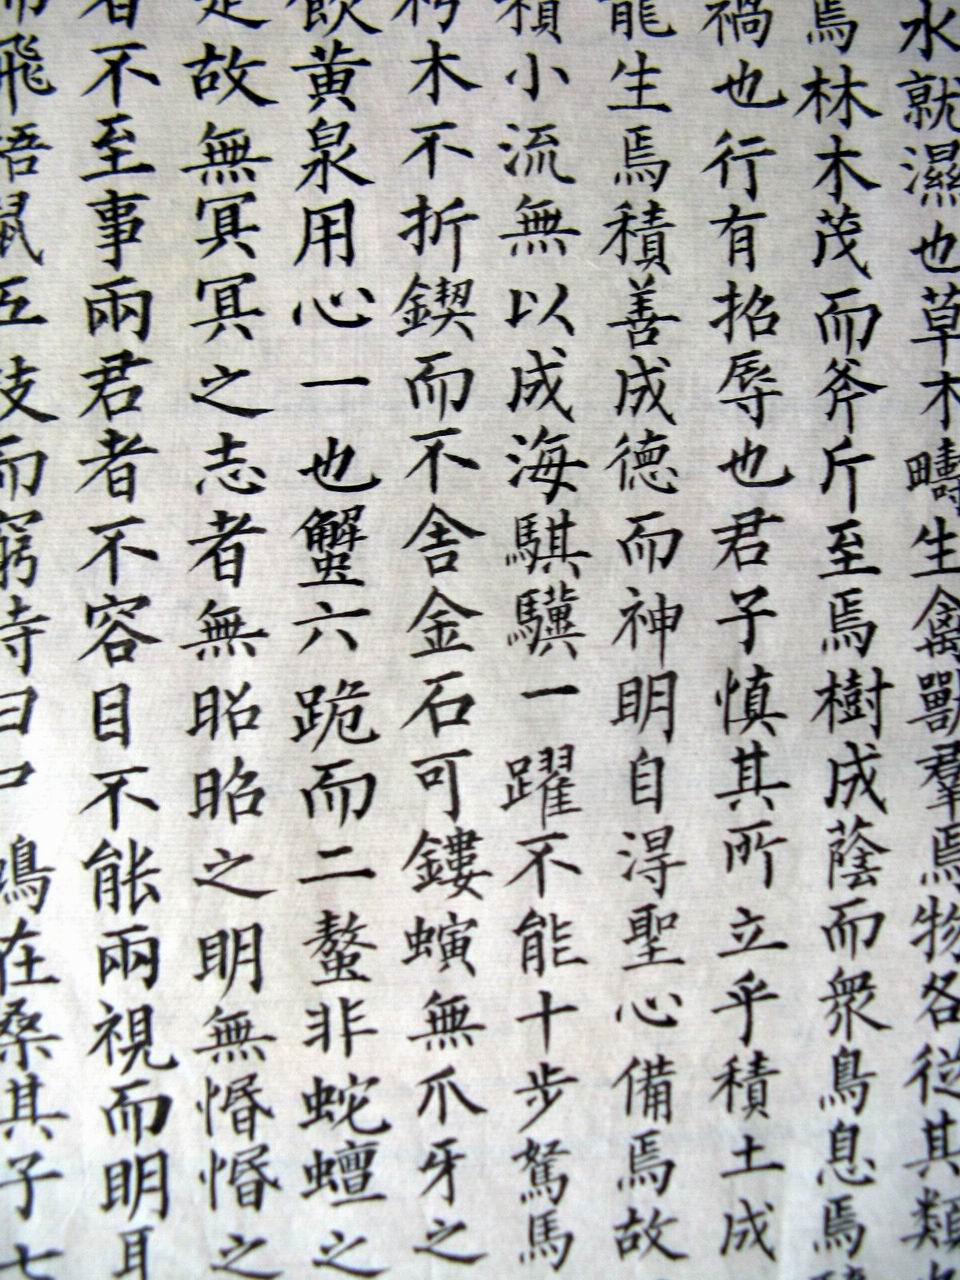 水就濕也草木疇生禽獸羣焉物各從其類
焉林木茂而斧斤至焉樹成蔭而衆鳥息焉
禍也行有招辱也君子慎其所立乎積土成
龍生焉積善成德而神明自得聖心備焉故
積小流無以成海騏驥一躍不能十步駑馬
朽木不折鍥而不舍金石可鏤螾無爪牙之
飲黃泉用心一也蟹六跪而二螯非蛇蟺之
是故無冥冥之志者無昭昭之明無惛惛之
者不至事兩君者不容目不能兩視而明耳
而飛梧鼠五技而窮詩曰尸鳩在桑其子七